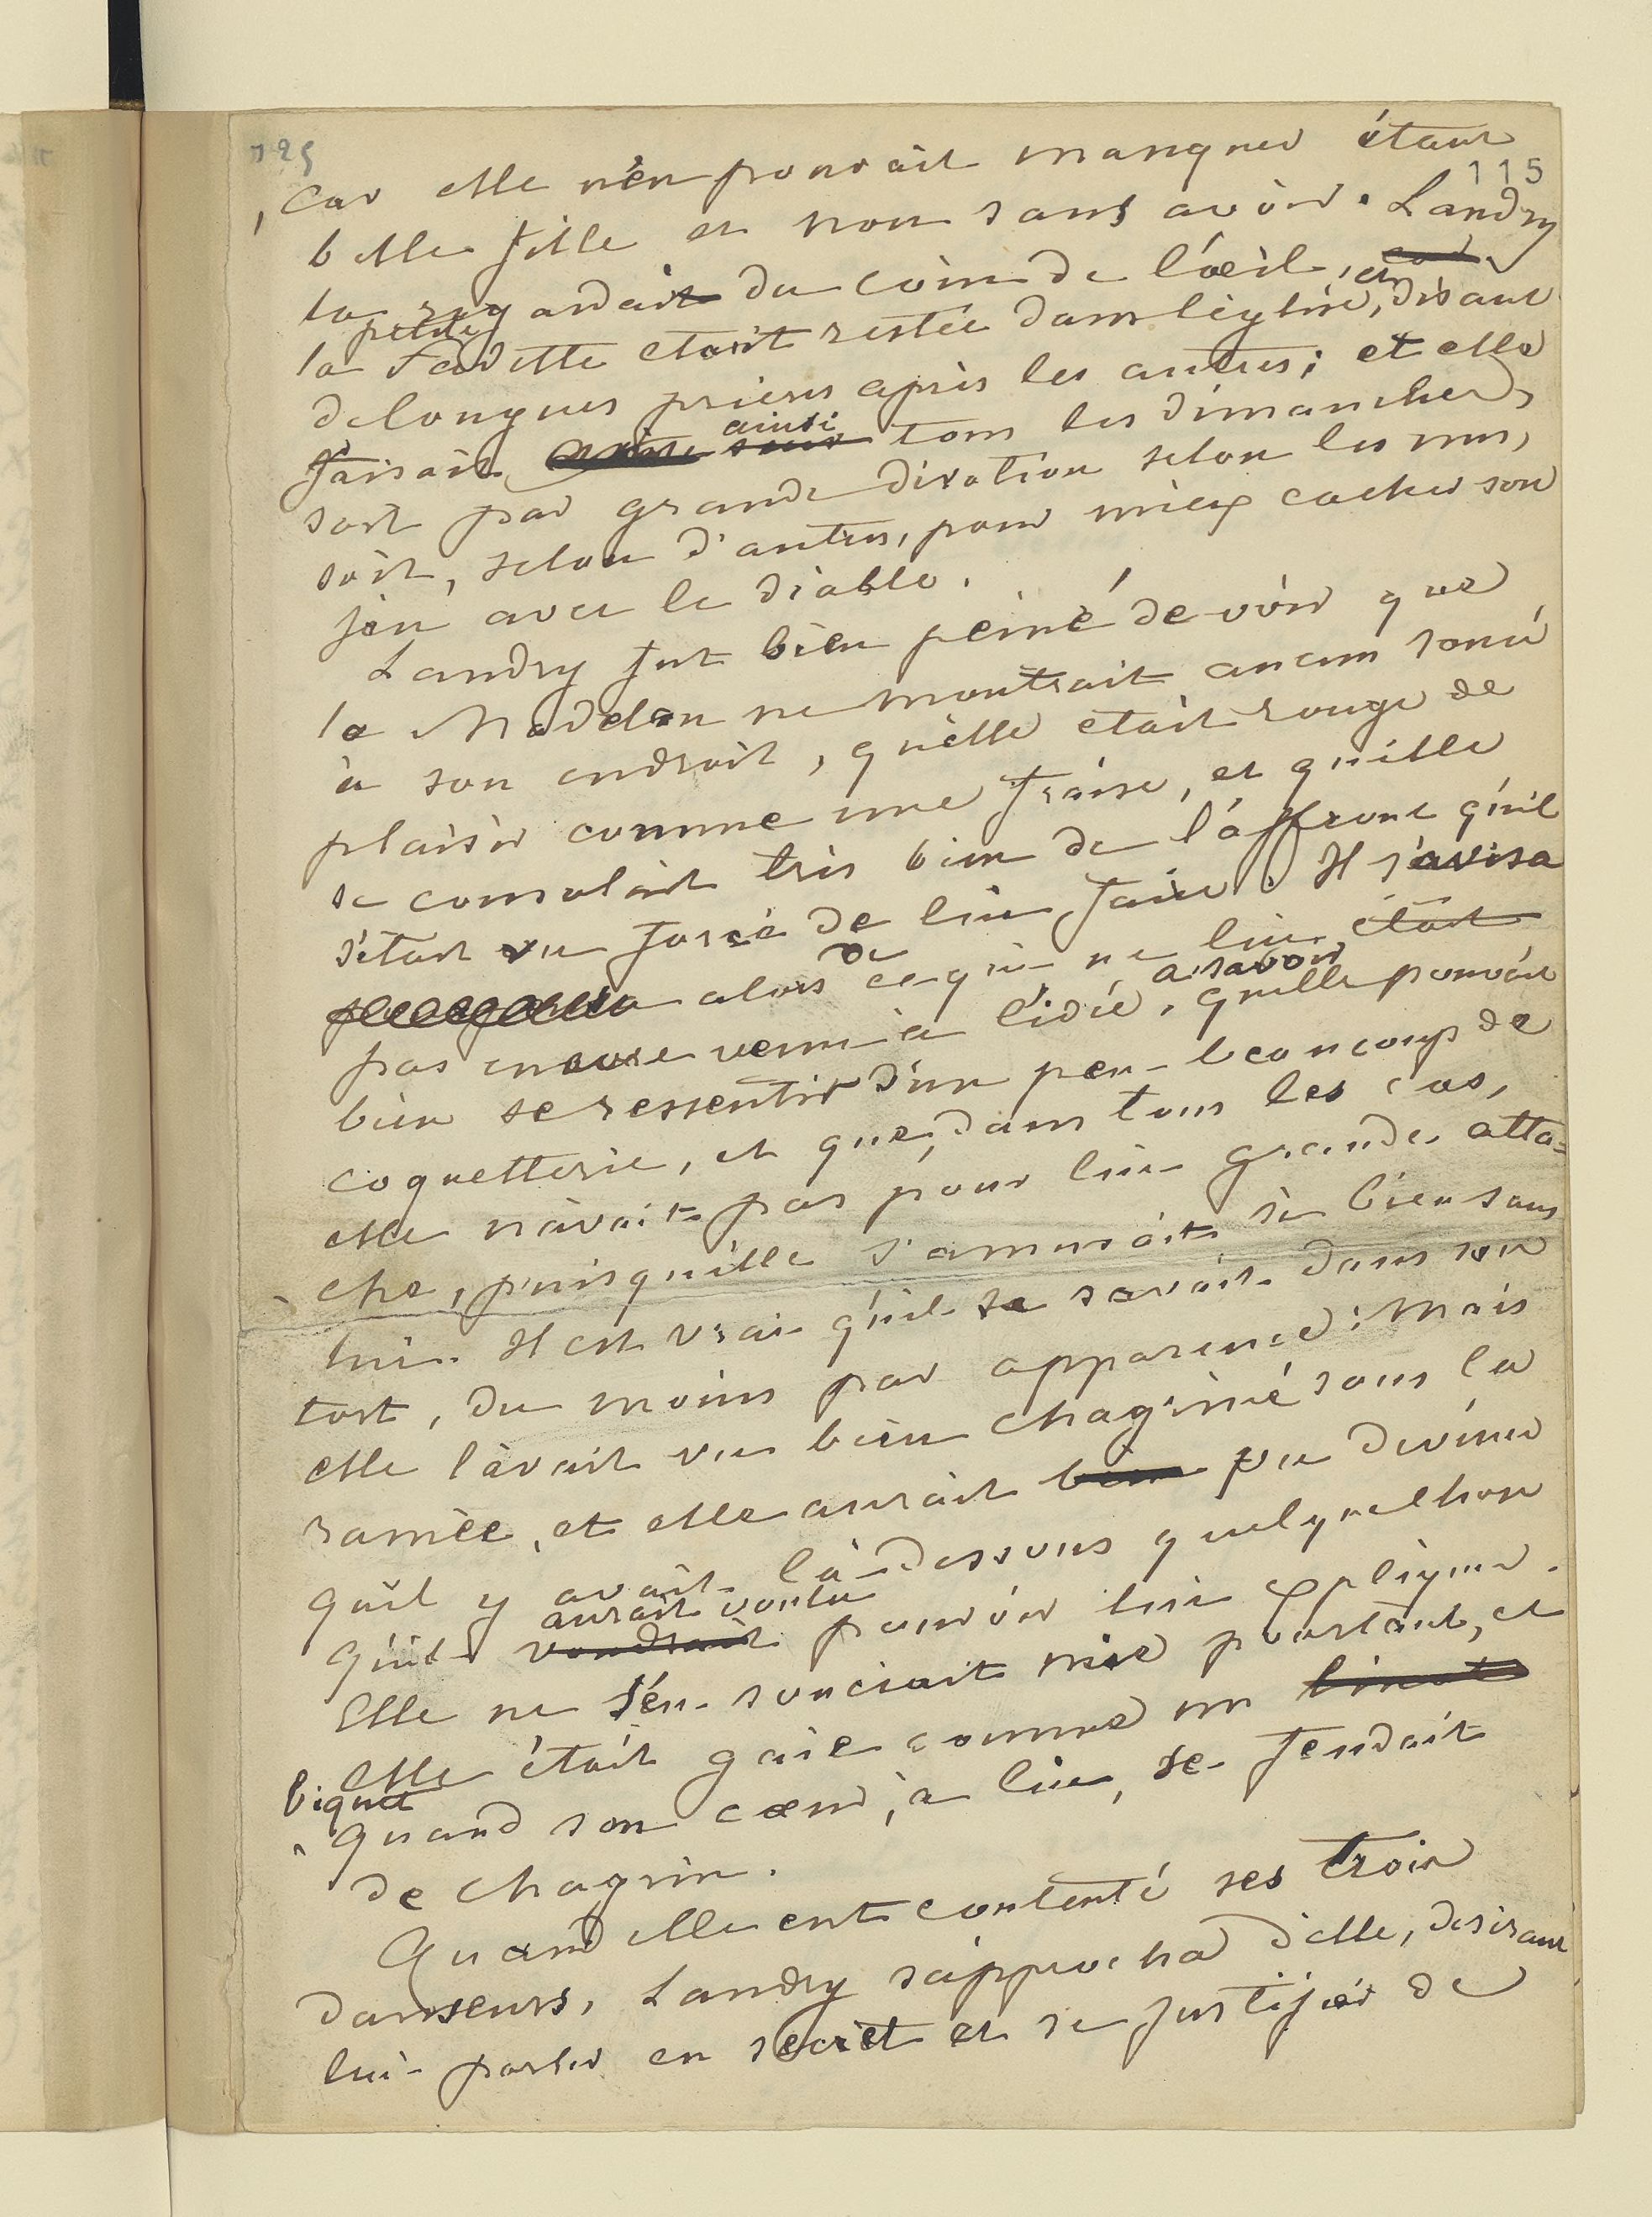 125
115
, car elle n'en pouvait manquer étant
belle fille et non sans avoir. Landry
la regardait du coin de l'œil, car
petite et
la Fadette etait restée dans l'église, disant
de longues prieres après les autres; et elle
ainsi
faisait tous les dimanches,
soit par grande dévotion selon les uns,
soit, selon d'autres, pour mieux cacher son
jeu avec le diable.
Landry fut bien peiné de voir que
la Madelon ne montrait aucun souci
à son endroit, qu'elle était rouge de
plaisir comme une fraise, et qu'elle
se consolait très bien de l'affront qu'il
s'etait vu forcé de lui faire. Il s'avisa
de
alors ce qui ne lui était
à savoir
pas encore venu à l'idée, qu'elle pouvait
bien se ressentir d'un peu beaucoup de
coquetterie, et que, dans tous les cas,
elle n'avait pas pour lui grande atta-
che, puisqu'elle s'amusait si bien sans
lui. Il est vrai qu'il se savait dans son
tort, du moins par apparence; mais
elle l'avait vu bien chagriné sous la
ramée, et elle aurait bien pu deviner
qu'il y avait là-dessous quelque chose
aurait voulu
qu'il voudrait pouvoir lui expliquer.
Elle ne s'en souciait mie pourtant, et
elle était gaie comme un linot
biquet
quand son cœur, à lui, se fendait
de chagrin.
Quand elle eut contenté ses trois
danseurs, Landry s'approcha d'elle, desirant
lui parler en secret et se justifier de